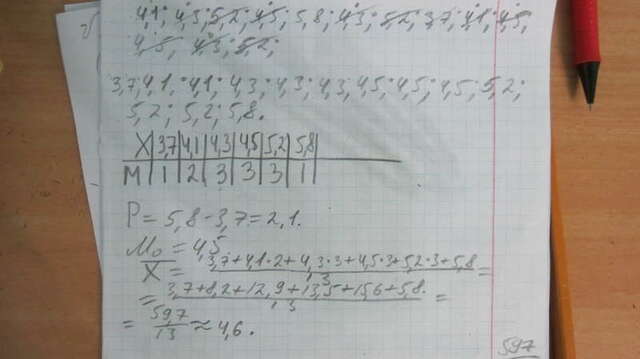 4,1; 4,5; 5,2; 4,5; 5,8; 4,3; 5,2; 3,7; 4,1; 4,5;
4,3; 4,3; 5,2;
3,7; 4,1; 4,1; 4,3; 4,3; 4,3; 4,5; 4,5; 4,5; 5,2;
5,2; 5,2; 5,8.
X | 3,7 | 4,1 | 4,3 | 4,5 | 5,2 | 5,8
M | 1 | 2 | 3 | 3 | 3 | 1
P = 5,8 - 3,7 = 2,1.
Mo = 4,5
X̄ = (3,7+4,1·2+4,3·3+4,5·3+5,2·3+5,8)/13 =
= (3,7+8,2+12,9+13,5+15,6+5,8)/13 =
= 59,7/13 ≈ 4,6.
597